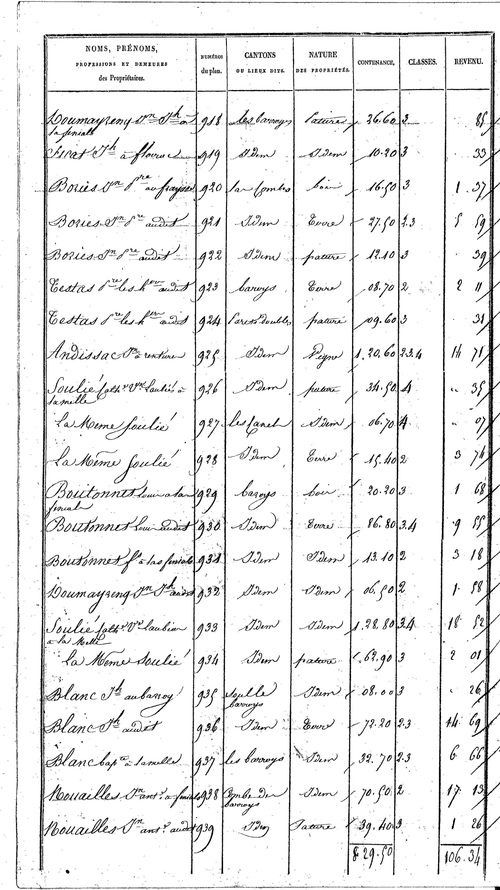 NOMS, PRÉNOMS, PROFESSIONS ET DEMEURES des Propriétaires. NUMÉROS du plan. CANTONS OU LIEUX DITS. NATURE DES PROPRIÉTÉS. CONTENANCE. CLASSES. REVENU.
Doumayrenq Jn Jh à 918 les barroys pature 26.60 3 85
la feniale
Ficat Jh à 919 Idem Idem 10.20 3 33
Bories Jn Pre au 920 bois 16.50 3 1 37
Bories Jn Pre audit 921 Idem Terre 27.50 2.3 5 59
Bories Jn Pre audit 922 Idem pature 12.10 3 39
Testas Pre les hers audit 923 baroys Terre 08.70 2 2 11
Testas Pre les hers audit 924 pature 09.60 3 31
Andissac à 925 Idem Vigne 1.20.60 2.3.4 14 71
Soulié Vve à 926 Idem pature 34.50 4 " 35
lamelle
La Même Soulié 927 les Canel Idem 06.70 4 " 07
La Même Soulié 928 Idem Terre 15.40 2 3 74
Boutonnet Louis à la 929 baroys bois 20.20 3 1 68
feniale
Boutonnet Louis audit 930 Idem Terre 86.80 3.4 9 55
Boutonnet fs à las feniale 931 Idem Idem 13.10 2 3 18
Doumayrenq Jn Jh audit 932 Idem Idem 06.50 2 1 58
Soulié Vve 933 Idem Idem 1.28.80 3.4 18 52
à la Melle
La Même Soulié 934 Idem pature 62.90 3 2 01
Blanc Jh au baroy 935 Soulle Idem 08.00 3 " 26
barroys
Blanc Jh audit 936 Idem Terre 72.20 2.3 14 69
Blanc bapte à lamelle 937 les barroys Idem 32.70 2.3 6 66
Nouailles Jn ant. à 938 Combe des Idem 70.50 2 17 13
barroys
Nouailles Jn ant. audit 939 Idem Pature 39.40 3 1 26
8 29.50 106.34